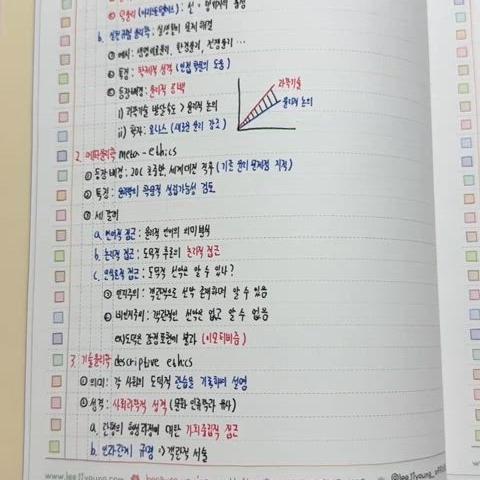 덕윤리 (아리스토텔레스) : 선 =
b. 실천규범 윤리학 : 실생활의 문제 해결
① 예시 : 생명의료윤리, 환경윤리, 전쟁윤리 …
② 특징 : 학제적 성격 (인접 학문의 도움)
③ 등장배경 : 윤리적 공백
과학기술
윤리적 논의
i) 과학기술 발달속도 > 윤리적 논의
ii) 학자 : 요나스 (새로운 윤리 강조)
2. 메타윤리학 meta-ethics
① 등장배경 : 20C 초중반, 세계대전 직후 (기존 윤리 문제점 지적)
② 특징 : 윤리학의 학문적 성립가능성 검토
③ 세 갈래
a. 언어적 접근 : 윤리적 언어의 의미분석
b. 논리적 접근 : 도덕적 추론의 논리적 접근
c. 인식론적 접근 : 도덕적 선악은 알 수 있나?
① 인지주의 : 객관적으로 선악 존재하며 알 수 있음
② 비인지주의 : 객관적인 선악은 없고 알 수 없음
ex) 도덕은 감정표현에 불과 (이모티비즘)
3. 기술윤리학 descriptive ethics
① 의미 : 각 사회의 도덕적 관습을 기록하여 설명
② 성격 : 사회과학적 성격 (문화 인류학과 유사)
a. 관행의 형성과정에 대한 가치중립적 접근
b. 인과관계 규명 → 객관적 서술
www.lee11young.
@lee.11young_